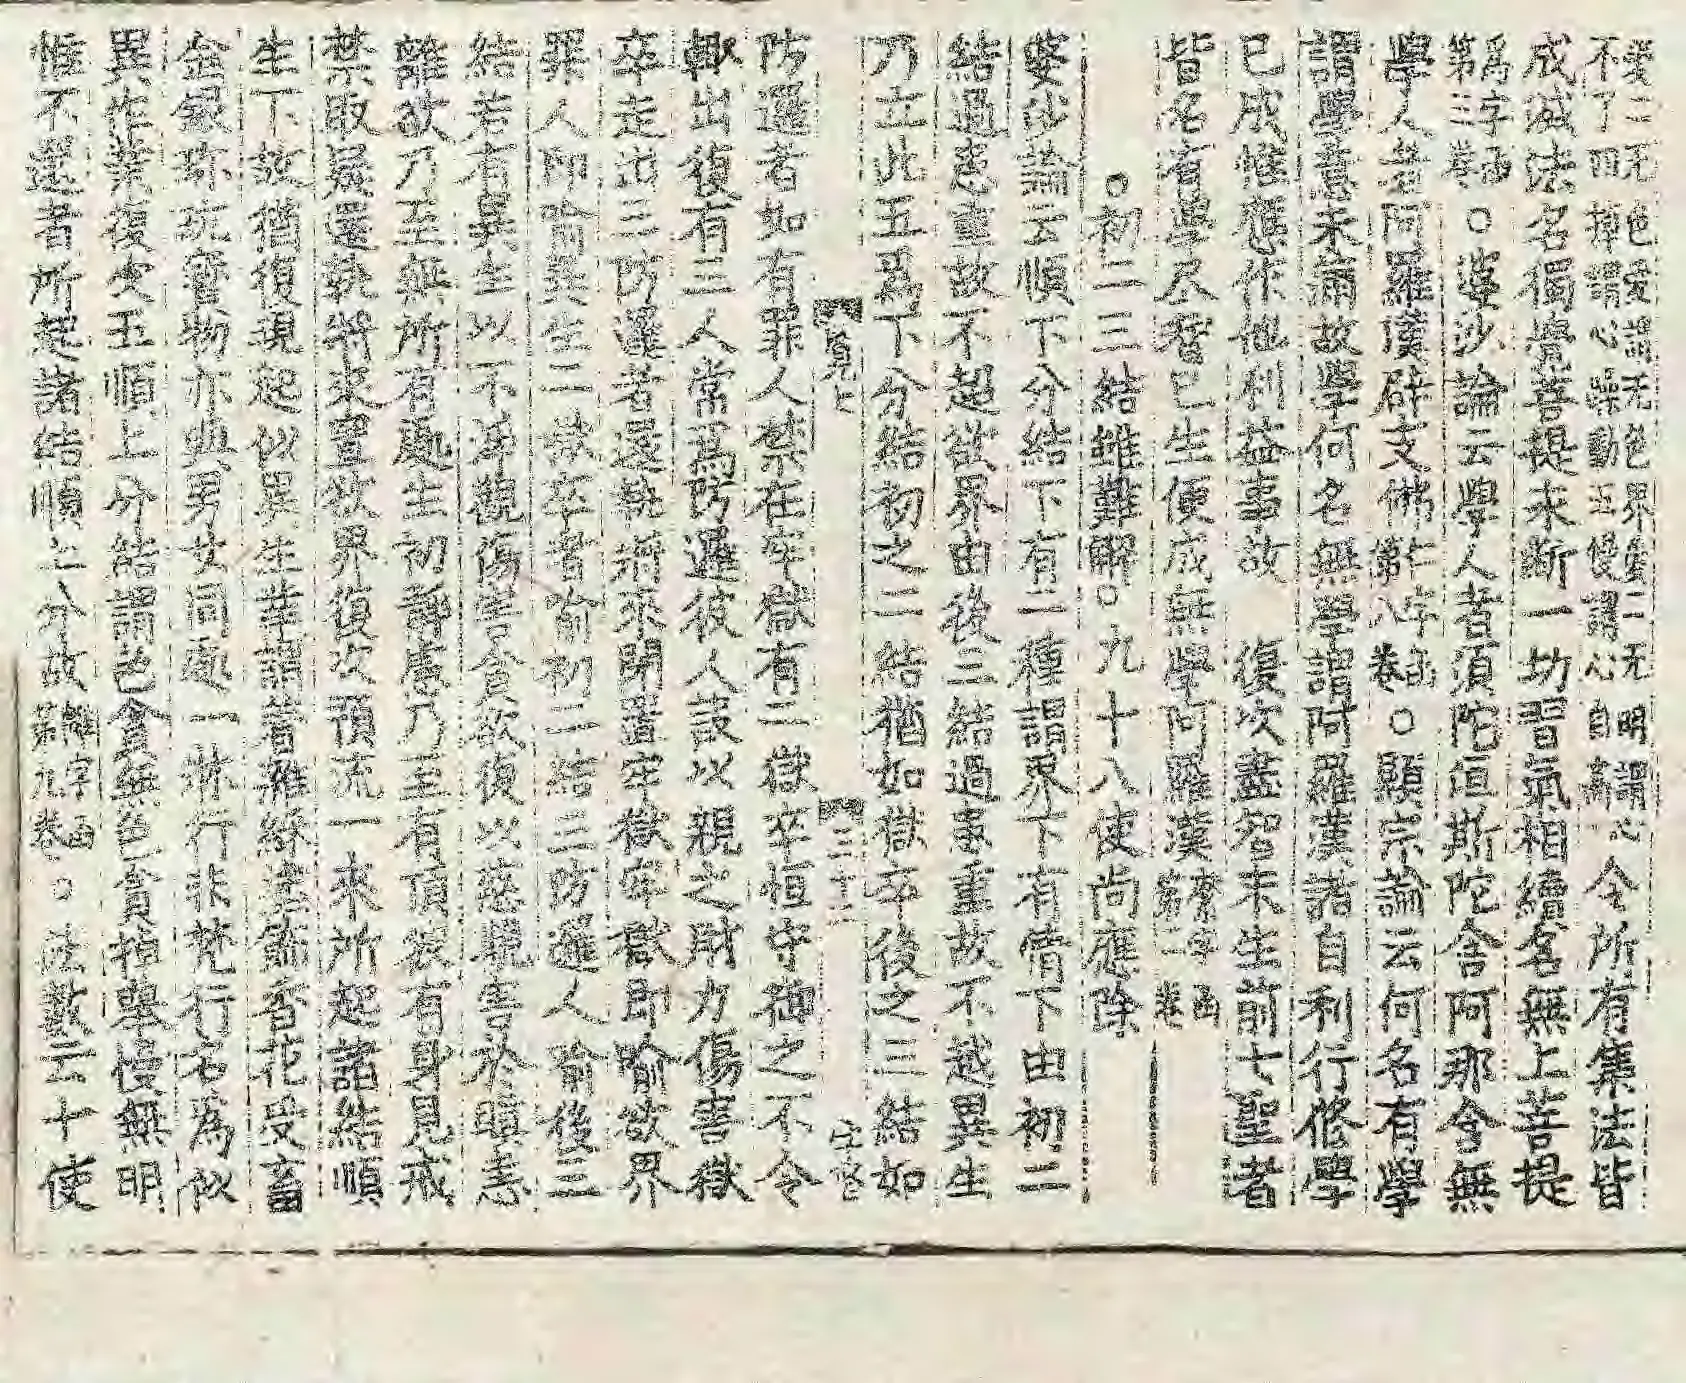 愛二无色愛謂无色界愛三无明謂心
不了四掉謂心躁動五慢謂心自高 令所有集法皆
成滅法名獨覺菩提來斷一切習氣相續名無上菩提
爲字函
第三卷 ○婆沙論云學人者須陀洹斯陀含阿那含無
學人者阿羅漢辟支佛
仁字函
第八卷 ○顯宗論云何名有學
謂學意未滿故學何名無學謂阿羅漢諸自利行修學
已成惟應作他利益事故 復次盡智未生前七聖者
皆名有學尽智已生便成無學阿羅漢
字函
第二卷
○初二三結雖難解○九十八使尚應除
婆沙論云順下分結下有二種謂界下有情下由初二
結過患重故不起欲界由後三結過患重故不越異生
乃立此五爲下分結初之二結猶如獄卒後之三結如
三十二
防邏者如有罪人禁在牢獄有二獄卒恒守禦之不令
輙出復有三人常爲防邏彼人設以親之財力傷害獄
卒走出三防邏者還執將來閉置牢獄牢獄即喻欲界
罪人即喻異生二獄卒者喻初二結三防邏人喻後三
結若有異生以不淨觀傷害貪欲復以慈觀害於瞋恚
離欲乃至無所有處生初靜慮乃至有頂彼有身見戒
禁取疑還執將來置欲界復次預流一來所起諸結順
生下故猶復現起似異生業謂著雜綵塗飾香花受畜
金銀珎玩寶物亦與男女同處一牀行非梵行名為似
異作業復次五順上分結謂色貪無色貪掉舉慢無明
惟不還者所起諸結順上分故
字函
第九卷 ○法數云十使